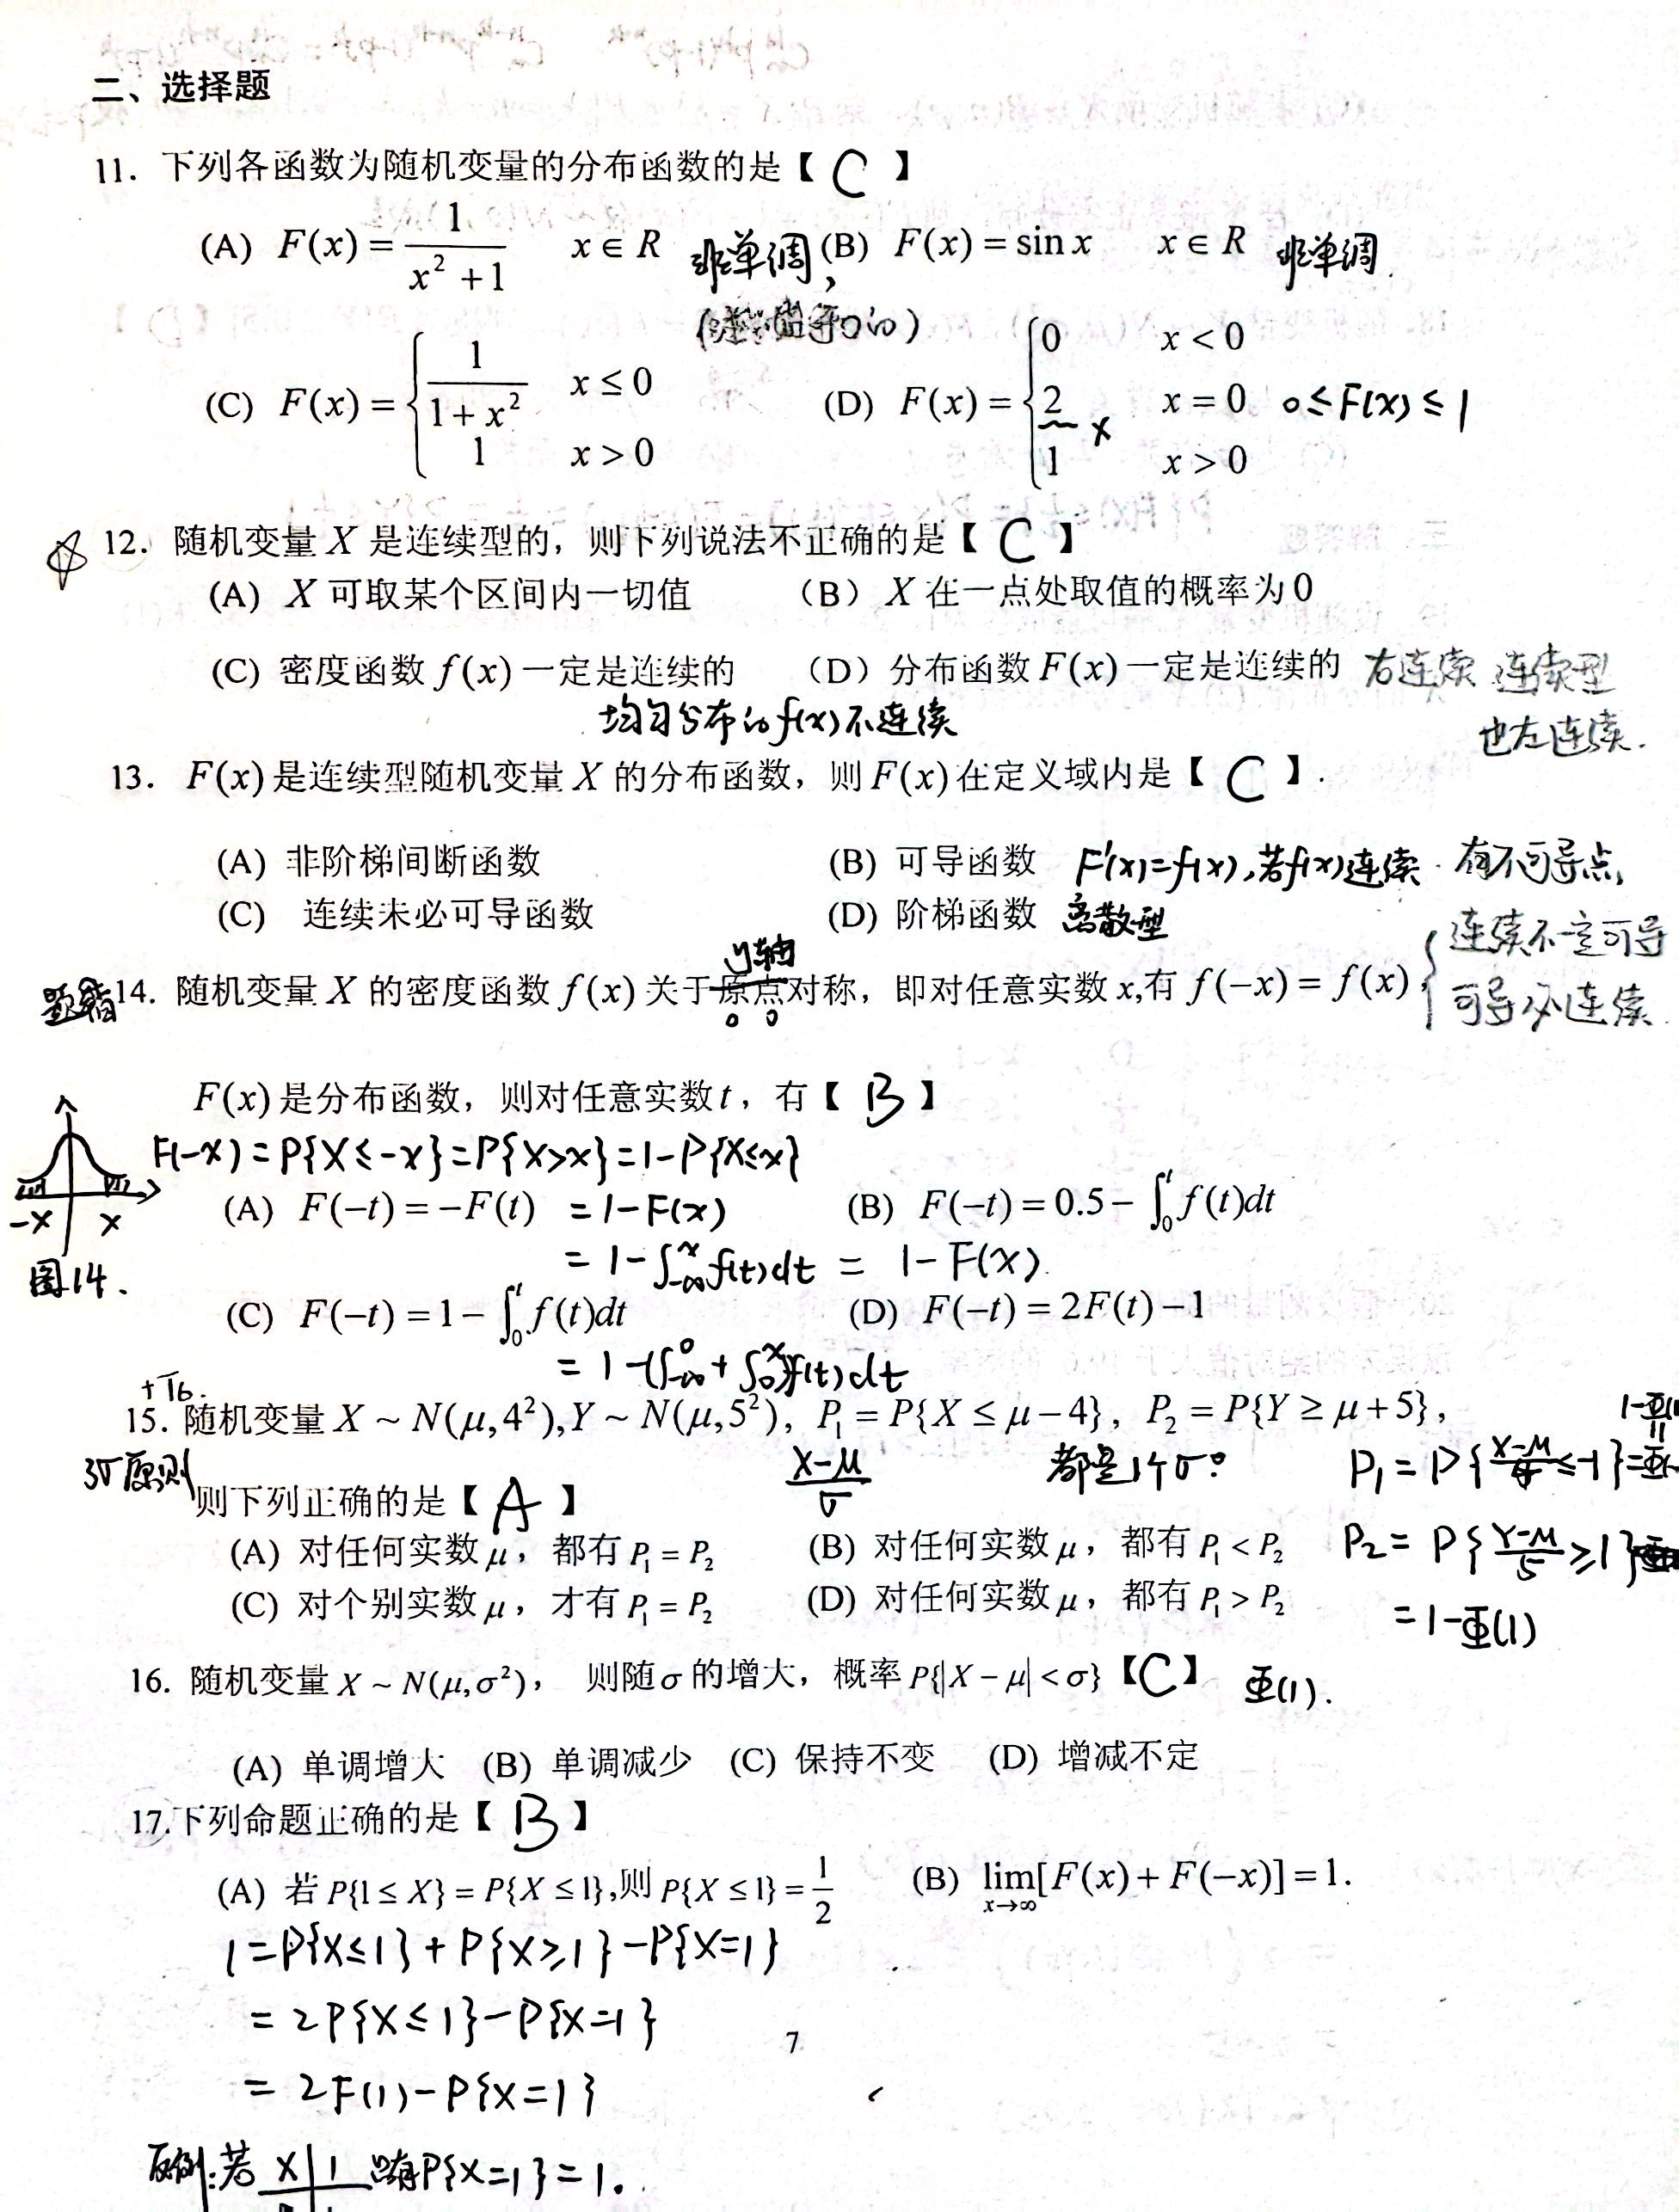 二、选择题
11. 下列各函数为随机变量的分布函数的是【 C 】
(A) F(x) = 1/(x² + 1)  x ∈ R 非单调, (B) F(x) = sin x  x ∈ R 非单调.
(C) F(x) = { 1/(1 + x²)  x ≤ 0
1  x > 0
(D) F(x) = { 0  x < 0
2 ×  x = 0  0 ≤ F(x) ≤ 1
1  x > 0
12. 随机变量 X 是连续型的，则下列说法不正确的是【 C 】
(A) X 可取某个区间内一切值 （B）X 在一点处取值的概率为 0
(C) 密度函数 f(x) 一定是连续的 （D）分布函数 F(x) 一定是连续的 右连续 连续型
也左连续.
均匀分布的 f(x) 不连续
13. F(x) 是连续型随机变量 X 的分布函数，则 F(x) 在定义域内是【 C 】.
(A) 非阶梯间断函数 (B) 可导函数 F'(x)=f(x),若f(x)连续. 有不可导点,
(C) 连续未必可导函数 (D) 阶梯函数 离散型
连续不一定可导
可导必连续.
y轴
题错 14. 随机变量 X 的密度函数 f(x) 关于原点对称，即对任意实数 x,有 f(-x) = f(x),
F(x) 是分布函数，则对任意实数 t，有【 B 】
F(-x) = P{X ≤ -x} = P{X > x} = 1 - P{X ≤ x}
(A) F(-t) = -F(t) = 1 - F(x) (B) F(-t) = 0.5 - ∫₀ᵗ f(t)dt
-x x
= 1 - ∫₋∞ˣ f(t)dt = 1 - F(x).
图14.
(C) F(-t) = 1 - ∫₀ᵗ f(t)dt (D) F(-t) = 2F(t) - 1
= 1 - (∫₋∞⁰ + ∫₀ˣ) f(t)dt
+T6.
15. 随机变量 X ~ N(μ,4²),Y ~ N(μ,5²)，P₁ = P{X ≤ μ - 4}，P₂ = P{Y ≥ μ + 5}，
3σ原则 (X-μ)/σ 都是1个σ?
则下列正确的是【 A 】
(A) 对任何实数 μ，都有 P₁ = P₂ (B) 对任何实数 μ，都有 P₁ < P₂
(C) 对个别实数 μ，才有 P₁ = P₂ (D) 对任何实数 μ，都有 P₁ > P₂
P₁ = P{(X-μ)/4 ≤ -1} =
P₂ = P{(Y-μ)/5 ≥ 1}
= 1 - Φ(1)
16. 随机变量 X ~ N(μ,σ²)， 则随 σ 的增大，概率 P{|X - μ| < σ}【C】 Φ(1).
(A) 单调增大 (B) 单调减少 (C) 保持不变 (D) 增减不定
17.下列命题正确的是【 B 】
(A) 若 P{1 ≤ X} = P{X ≤ 1},则 P{X ≤ 1} = 1/2 (B) lim x→∞ [F(x) + F(-x)] = 1.
1 = P{X ≤ 1} + P{X ≥ 1} - P{X = 1}
= 2P{X ≤ 1} - P{X = 1}
= 2F(1) - P{X = 1}
7
反例: 若 X | 1 只有 P{X = 1} = 1.